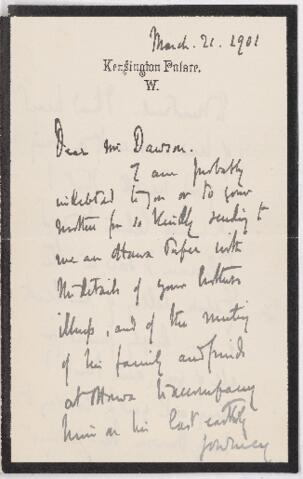 March. 21. 1901
Kensington Palace,
W.
Dear Mr Dawson.
I am probably
indebted to you or to your
mother for so kindly sending to
me an Ottawa Paper with
the details of your brothers
illness, and of the meeting
of his family and friends
at Ottawa to accompany
him on his last earthly
journey